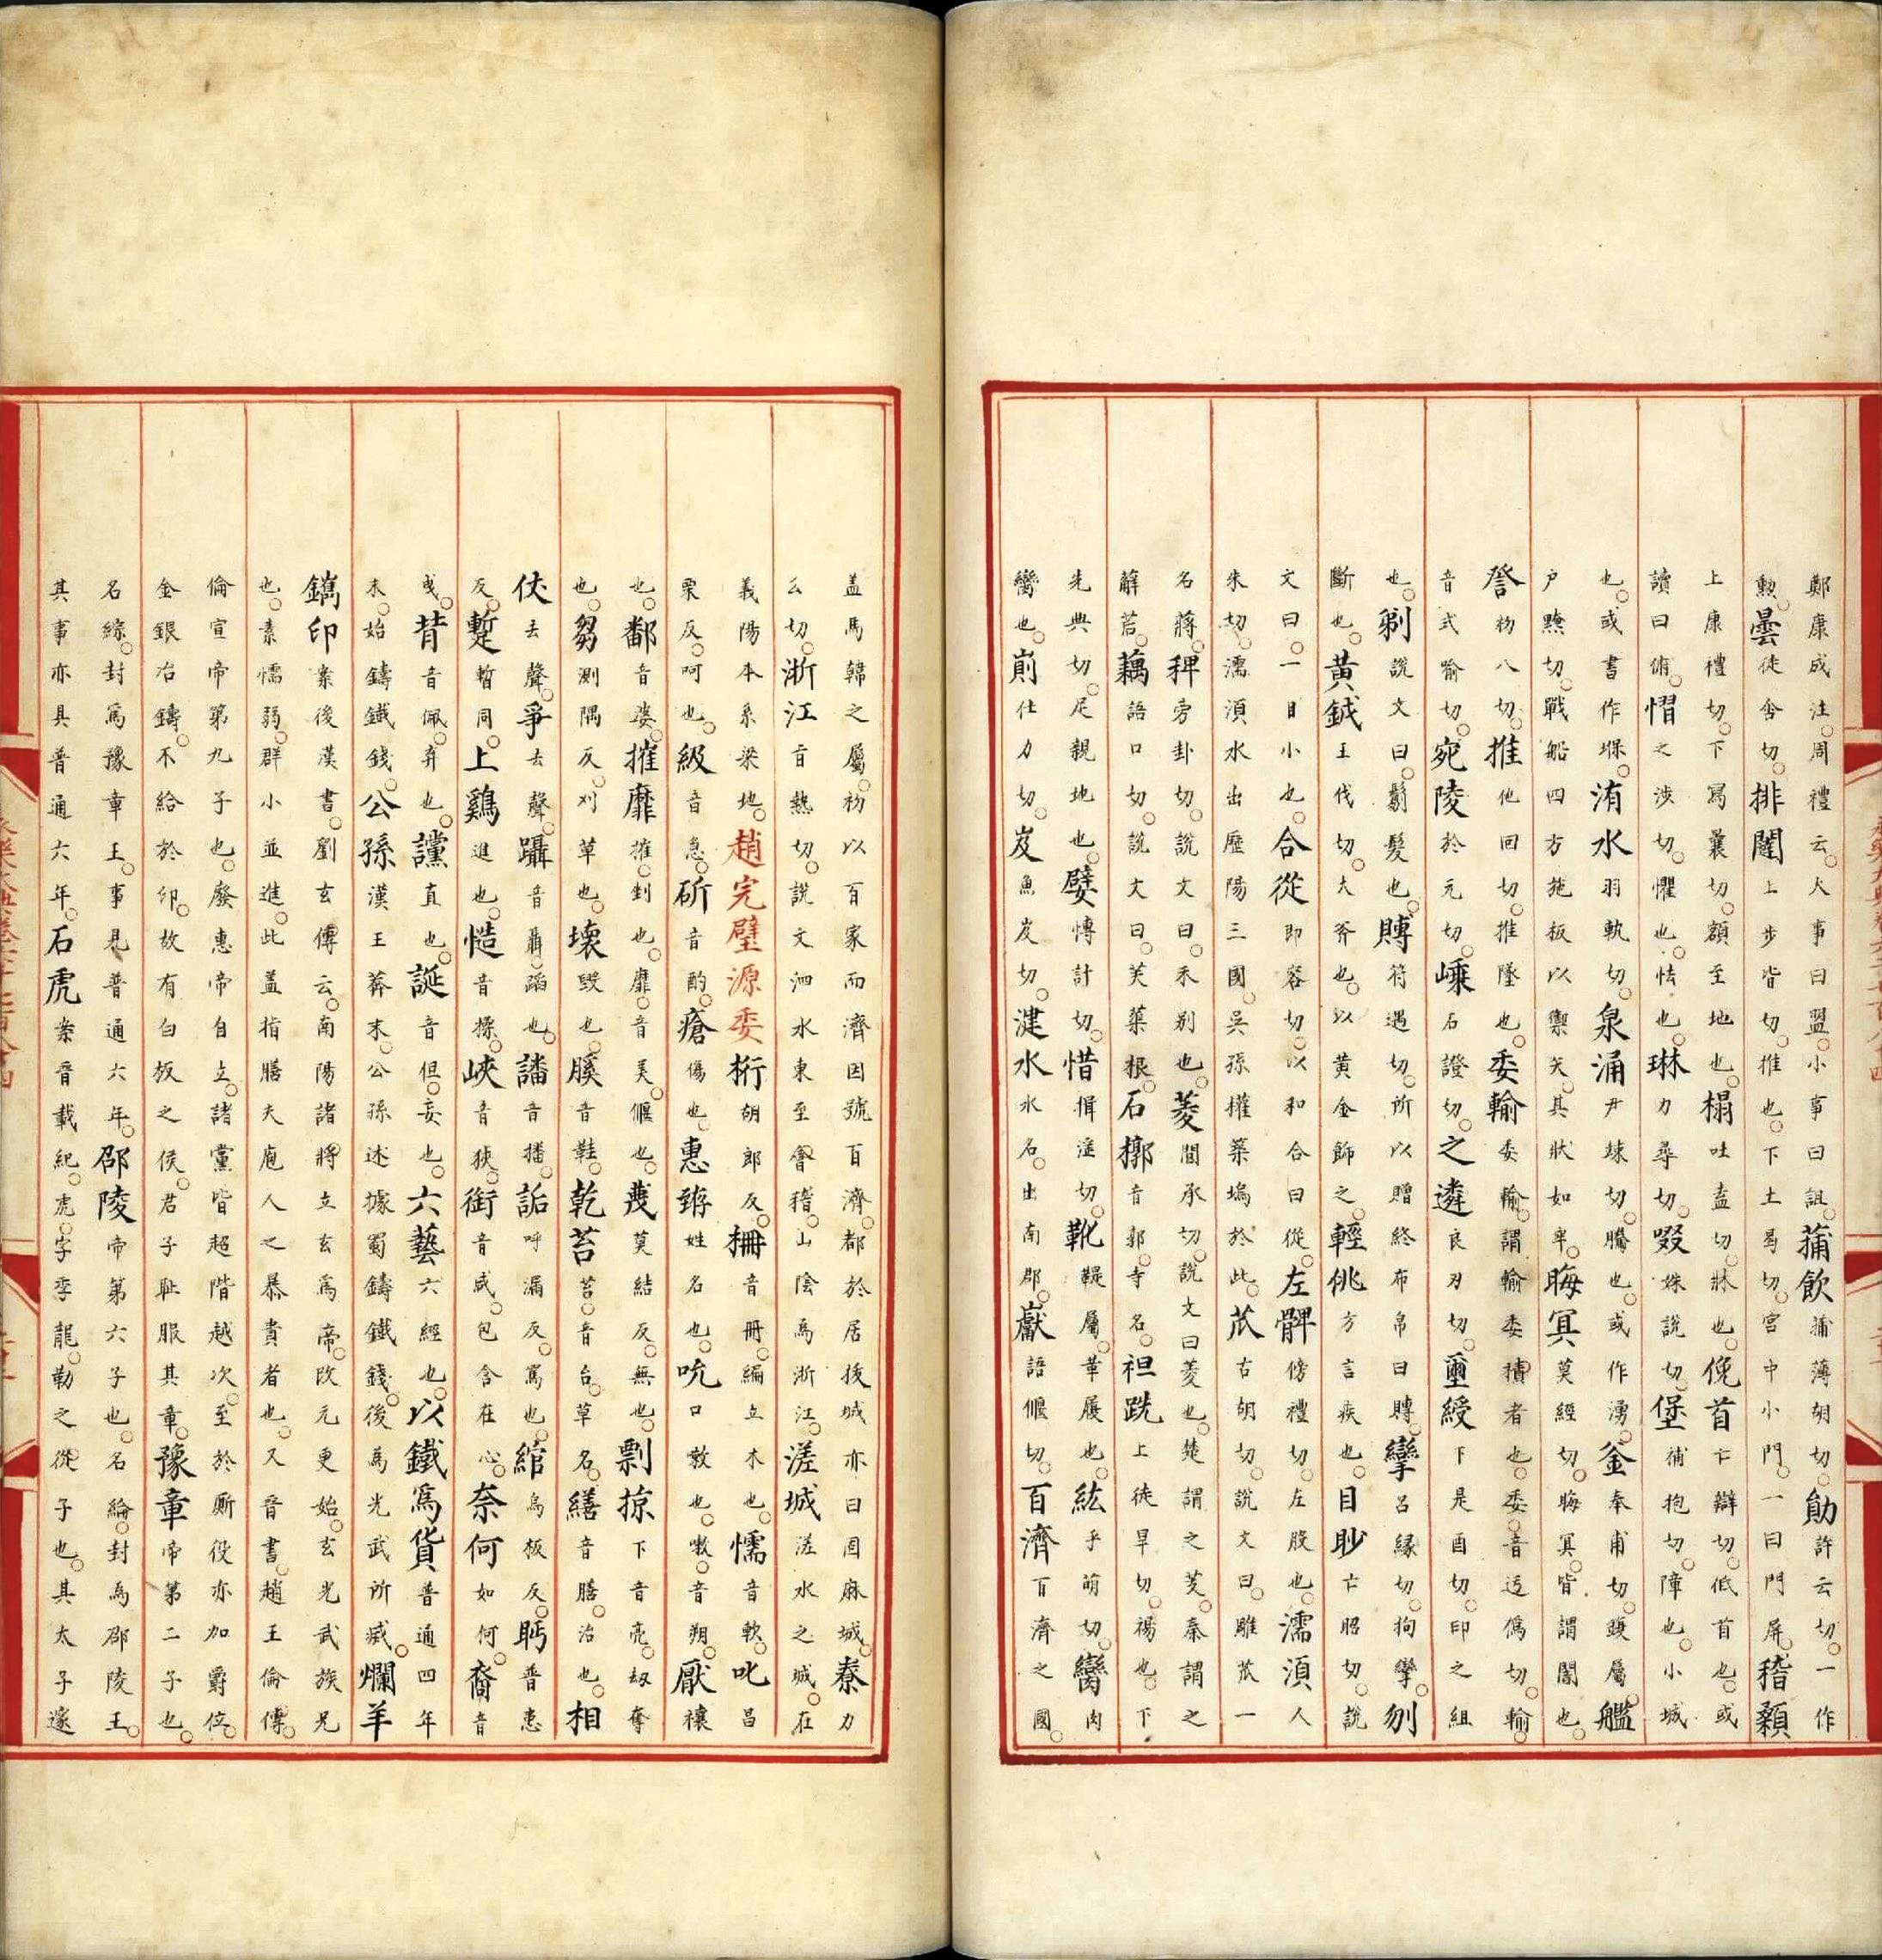 鄭康成注周禮云大事曰盟小事曰詛蒲飲蒲薄胡切勛許云切一作
勲曇徒含切排闥上步皆切推也下土曷切宮中小門一曰門屏稽顙
上康禮切下寫曩切額至地也榻吐盍切牀也俛首亡辯切低首也或
讀曰俯慴之涉切懼也怯也琳力尋切啜姝說切堡補抱切障也小城
也或書作堢洧水羽軌切泉涌尹竦切騰也或作湧釜奉甫切鍑屬艦
户黤切戰船四方施板以禦矢其狀如牢晦冥莫經切晦冥皆謂闇也
詧初八切推他回切推墜也委輸委輸謂輸委積者也委音逶僞切輸
音式喻切宛陵於元切嵊石證切之遴良刃切璽綬下是酉切印之組
也剔說文曰鬄髮也賻符遇切所以贈終布帛曰賻攣呂緣切拘攣刎
斷也黃鉞王伐切大斧也以黃金飾之輕佻方言疾也目眇亡昭切說
文曰一目小也合從即容切以和合曰從左髀傍禮切左股也濡須人
朱切濡須水出歷陽三國吳孫權築塢於此苽古胡切說文曰雕苽一
名蔣稗旁卦切說文曰禾别也菱閭承切說文曰菱也楚謂之芰秦謂之
薢茩藕語口切說文曰芙蕖根石槨音郭寺名袒跣上徒旱切裼也下
先典切足親地也嬖愽計切惜揖滛切靴鞮屬華履也紘乎萌切臠肉
臠也崱仕力切岌魚岌切湕水水名出南郡巘語偃切百濟百濟之國
蓋馬韓之屬初以百家而濟因號百濟都於居拔城亦曰固麻城寮力
么切浙江旨熱切說文泗水東至會稽山陰爲浙江溠城溠水之城在
義陽本系梁地趙完璧源委桁胡郎反柵音冊編立木也懦音軟叱昌
栗反呵也級音急斫音酌瘡傷也惠蹐姓名也吮口敕也嗽音朔厭禳
也鄱音婆摧靡摧剉也靡音美偃也蔑莫結反無也剽掠下音亮刼奪
也芻測隅反刈草也壞毀也膎音鞋乾苔苔音台草名繕音膳治也相
伏去聲爭去聲躡音聶蹈也譒音播詬呼漏反罵也綰烏板反眄普惠
反蹔暫同上鷄進也慥音操峽音狹銜音咸包含在心奈何如何裔音
曵昔音佩弃也讜直也誕音但妄也六藝六經也以鐵爲貨普通四年
末始鑄鐵錢公孫漢王莽末公孫述據蜀鑄鐵錢後爲光武所滅爛羊
鐫印案後漢書劉玄傳云南陽諸將立玄爲帝改元更始玄光武族兄
也素懦弱群小並進此蓋指膳夫庖人之暴貴者也又晉書趙王倫傳
倫宣帝第九子也廢惠帝自立諸黨皆超階越次至於厮役亦加爵位
金銀冶鑄不給於印故有白板之侯君子恥服其章豫章帝第二子也
名綜封爲豫章王事見普通六年邵陵帝第六子也名綸封爲邵陵王
其事亦具普通六年石虎案晉載紀虎字季龍勒之從子也其太子邃